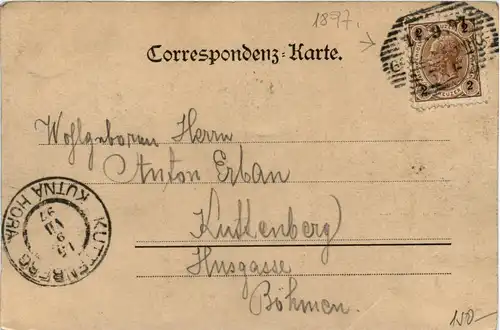 1897.
Correspondenz=Karte.
KREUZER
2 2
Wohlgeboren Herrn
Anton Erban
Kuttenberg)
Husgasse
Böhmen.
KUTTENBERG
KUTNA HORA
15
9
VII
97
150-